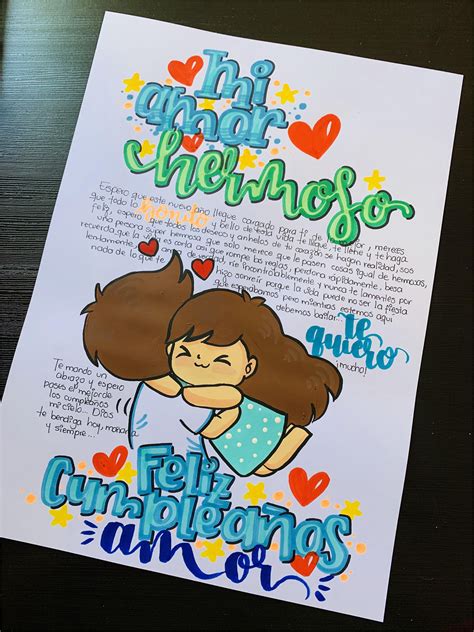 mi
amor
hermoso
Espero que este nuevo año llegue cargado para ti de lo mejor, mereces
que todo lo bonito y bello de la vida te llegue, te llene y te haga
feliz, espero que todos los deseos y anhelos de tu corazón se hagan realidad, sos
una persona super hermosa que solo merece que le pasen cosas igual de hermosas,
recuerda que la vida es corta así que rompe las reglas, perdona rápidamente, besa
lentamente de verdad, ríe incontrolablemente y nunca te lamentes por
nada de lo que te hizo sonreír porque la vida puede no ser la fiesta
que esperábamos pero mientras estemos aquí
debemos bailar...
te
quiero
¡mucho!
Te mando un
abrazo y espero
pases el mejor de
los cumpleaños
mi cielo... DIOS
te bendiga hoy, mañana
y siempre...
Feliz
Cumpleaños
amor